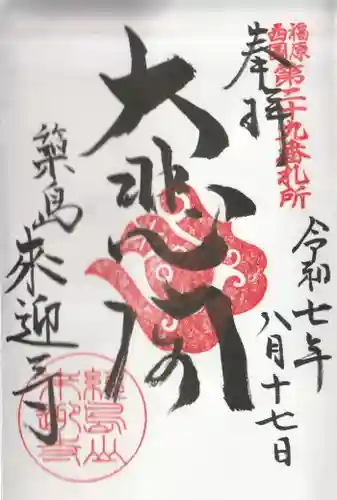 奉拝
福原
西国
第二十九番札所
令和七年
八月十七日
大悲閣
築島
来迎寺
経島山
来迎寺